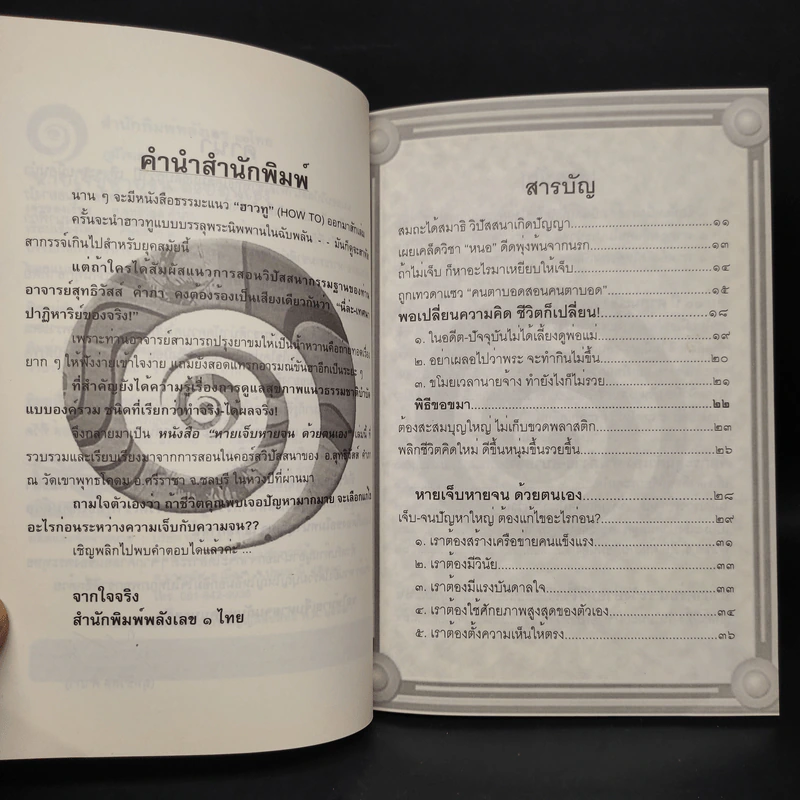 คำนำสำนักพิมพ์
นาน ๆ จะมีหนังสือธรรมะแนว "ฮาวทู" (HOW TO) ออกมาสักเล่ม
ครั้นจะนำฮาวทูแบบบรรลุพระนิพพานในฉับพลัน - - มันก็ดูจะ
สากรรจ์เกินไปสำหรับยุคสมัยนี้
แต่ถ้าใครได้สัมผัสแนวการสอนวิปัสสนากรรมฐานของท่าน
อาจารย์สุทธิวัสส์ คำภา คงต้องร้องเป็นเสียงเดียวกันว่า "นี่ล่ะ-เทศนา
ปาฏิหาริย์ของจริง!"
เพราะท่านอาจารย์สามารถปรุงยาขมให้เป็นน้ำหวานคือถ่ายทอดเรื่อง
ยาก ๆ ให้ฟังง่ายเข้าใจง่าย แถมยังสอดแทรกอารมณ์ขันขำอีกเป็นระยะ ๆ
ที่สำคัญยังได้ความรู้เรื่องการดูแลสุขภาพแนวธรรมชาติบำบัด
แบบองค์รวม ชนิดที่เรียกว่าทำจริง-ได้ผลจริง!
จึงกลายมาเป็น หนังสือ "หายเจ็บหายจน ด้วยตนเอง" เล่มนี้ ที่
รวบรวมและเรียบเรียงมาจากการสอนในคอร์สวิปัสสนาของ อ.สุทธิวัสส์ คำภา
ณ วัดเขาพุทธโคดม อ.ศรีราชา จ.ชลบุรี ในห้วงปีที่ผ่านมา
ถามใจตัวเองว่า ถ้าชีวิตคุณพบเจอปัญหามากมาย จะเลือกแก้ไข
อะไรก่อนระหว่างความเจ็บกับความจน??
เชิญพลิกไปพบคำตอบได้แล้วค่ะ ...
จากใจจริง
สำนักพิมพ์พลังเลข ๑ ไทย
สารบัญ
สมถะได้สมาธิ วิปัสสนาเกิดปัญญา....๑๑
เผยเคล็ดวิชา "หนอ" ดีดพุ่งพ้นจากนรก....๑๓
ถ้าไม่เจ็บ ก็หาอะไรมาเหยียบให้เจ็บ....๑๔
ถูกเทวดาแซว "คนตาบอดสอนคนตาบอด"....๑๕
พอเปลี่ยนความคิด ชีวิตก็เปลี่ยน!....๑๘
๑. ในอดีต-ปัจจุบันไม่ได้เลี้ยงดูพ่อแม่....๑๙
๒. อย่าเผลอไปว่าพระ จะทำกินไม่ขึ้น....๒๐
๓. ขโมยเวลานายจ้าง ทำยังไงก็ไม่รวย....๒๑
พิธีขอขมา....๒๒
ต้องสะสมบุญใหญ่ ไม่เก็บขวดพลาสติก....๒๓
พลิกชีวิตคิดใหม่ ดีขึ้นหนุ่มขึ้นรวยขึ้น....๒๖
หายเจ็บหายจน ด้วยตนเอง....๒๘
เจ็บ-จนปัญหาใหญ่ ต้องแก้ไขอะไรก่อน?....๒๙
๑. เราต้องสร้างเครือข่ายคนแข็งแรง....๓๑
๒. เราต้องมีวินัย....๓๓
๓. เราต้องมีแรงบันดาลใจ....๓๓
๔. เราต้องใช้ศักยภาพสูงสุดของตัวเอง....๓๔
๕. เราต้องตั้งความเห็นให้ตรง....๓๖